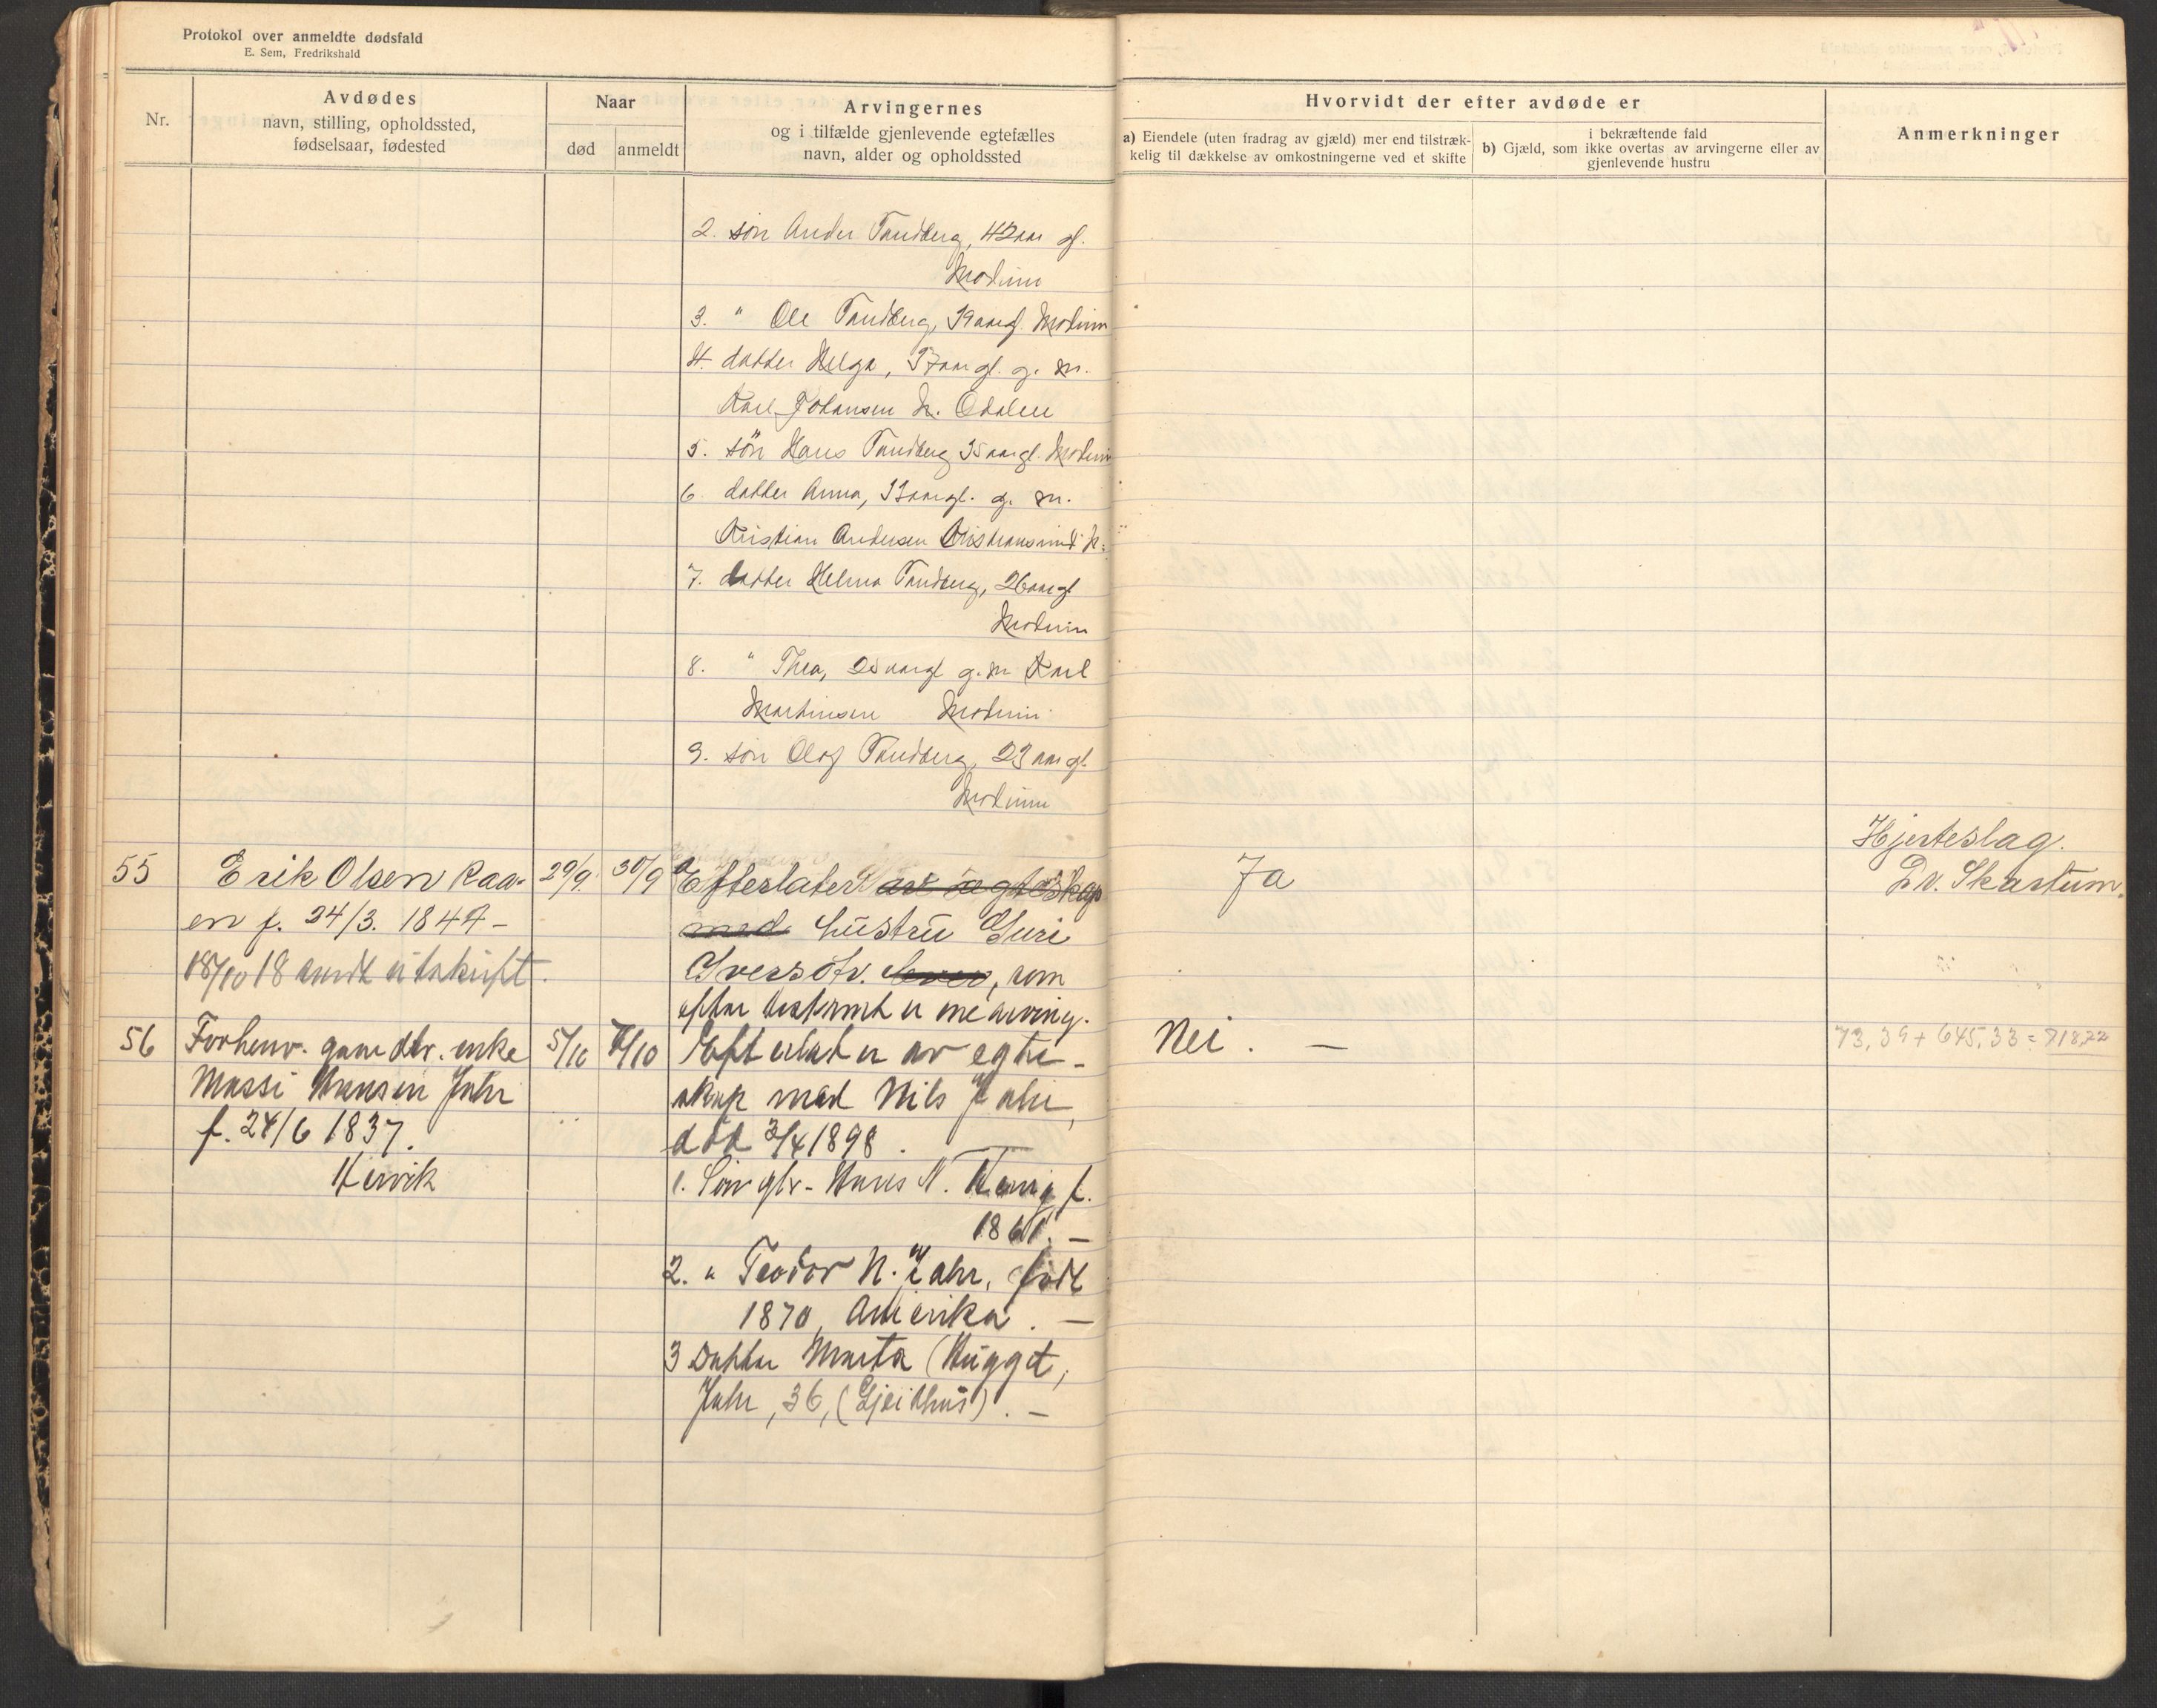 Protokol over anmeldte dødsfald
E. Sem, Fredrikshald
Nr.
Avdødes
navn, stilling, opholdssted,
fødselsaar, fødested
Naar
død
anmeldt
Arvingernes
og i tilfælde gjenlevende egtefælles
navn, alder og opholdssted
Hvorvidt der efter avdøde er
a) Eiendele (uten fradrag av gjæld) mer end tilstræk-
kelig til dækkelse av omkostningerne ved et skifte
i bekræftende fald
b) Gjæld, som ikke overtas av arvingerne eller av
gjenlevende hustru
Anmerkninger
2. søn Ander Tandberg, 42 aar gl.
Modum
3. " Ole Tandberg, 39 aar gl. Modum
4. datter Helga, 37 aar gl. g. m.
Karl Johansen N. Odalen
5. søn Hans Tandberg 35 aar gl. Modum
6. datter Anna, aar gl. g. m.
Kristian Andersen Kristiansund N.
7. datter Helma Tandberg, 26 aar gl
Modum
8. " Thea, 25 aar gl g. m Karl
Martinsen Modum
9. søn Olaf Tandberg, 23 aar gl.
Modum
55
Erik Olsen Raa-
en f. 24/3. 1844 -
18/10 18 sendt utskrift.
29/9.
30/9
Efterlater av ægteskap
med hustru Guri
Iversdtr. , som
efter testament er enearving.
Ja
Hjerteslag.
D.v. Skartum.
56
Forhenv. gaardbr. enke
Massi Hansen Jahr
f. 24/6 1837.
Hervik
5/10
/10
Efterlater av egte-
skap med Nils Jahr,
død 3/4 1898.
1. Søn gbr. Hans N. f.
1861. -
2. " Teodor N. Jahr, født
1870, Amerika. -
3 Datter Marta (Hugget,
Jahr, 36, (Gjeithus). -
Nei. -
73,39 + 645,33 = 718,72